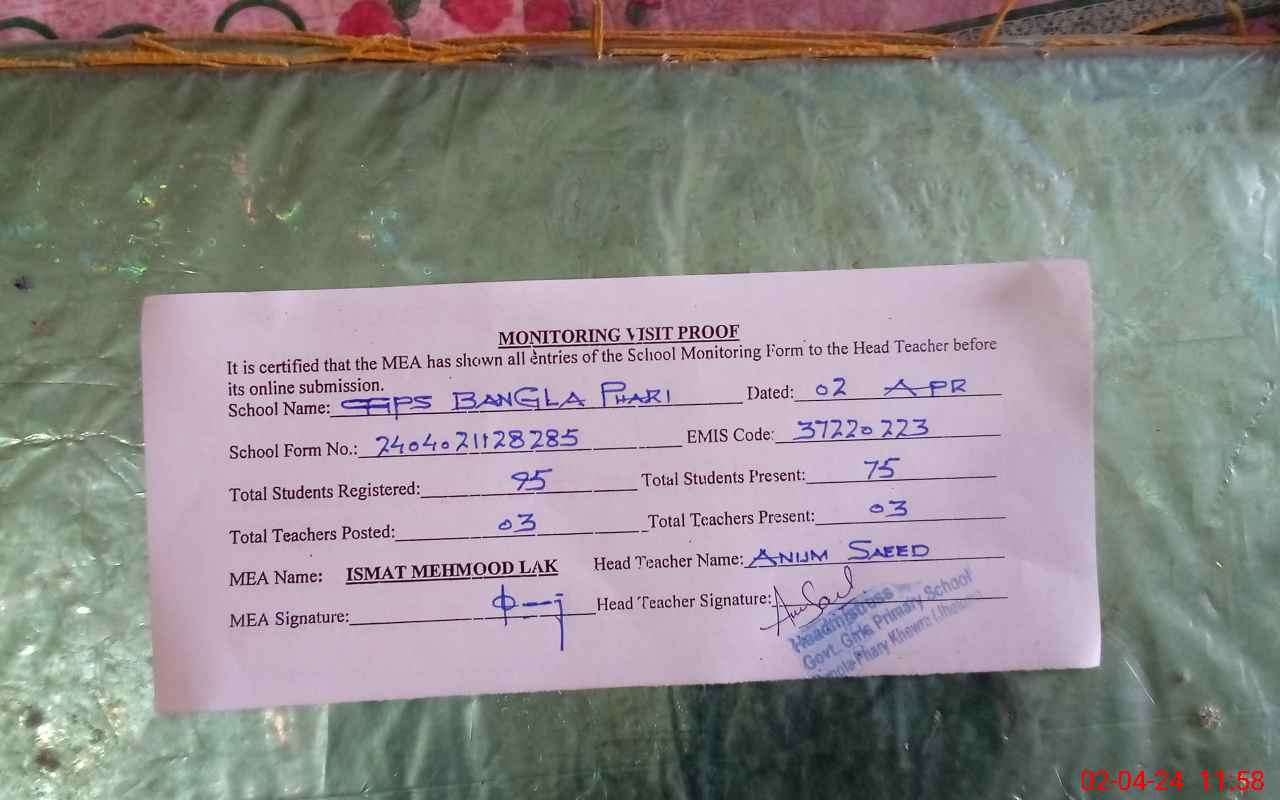 MONITORING VISIT PROOF
It is certified that the MEA has shown all entries of the School Monitoring Form to the Head Teacher before
its online submission.
School Name: GGPS BANGLA PHARI Dated: 02 APR
School Form No.: 2404021128285 EMIS Code: 37220223
Total Students Registered: 95 Total Students Present: 75
Total Teachers Posted: 03 Total Teachers Present: 03
MEA Name: ISMAT MEHMOOD LAK Head Teacher Name: ANUM SAEED
MEA Signature: Head Teacher Signature:
Headmistress
Govt. Girls Primary School
Phary Khewra
02-04-24 11:58